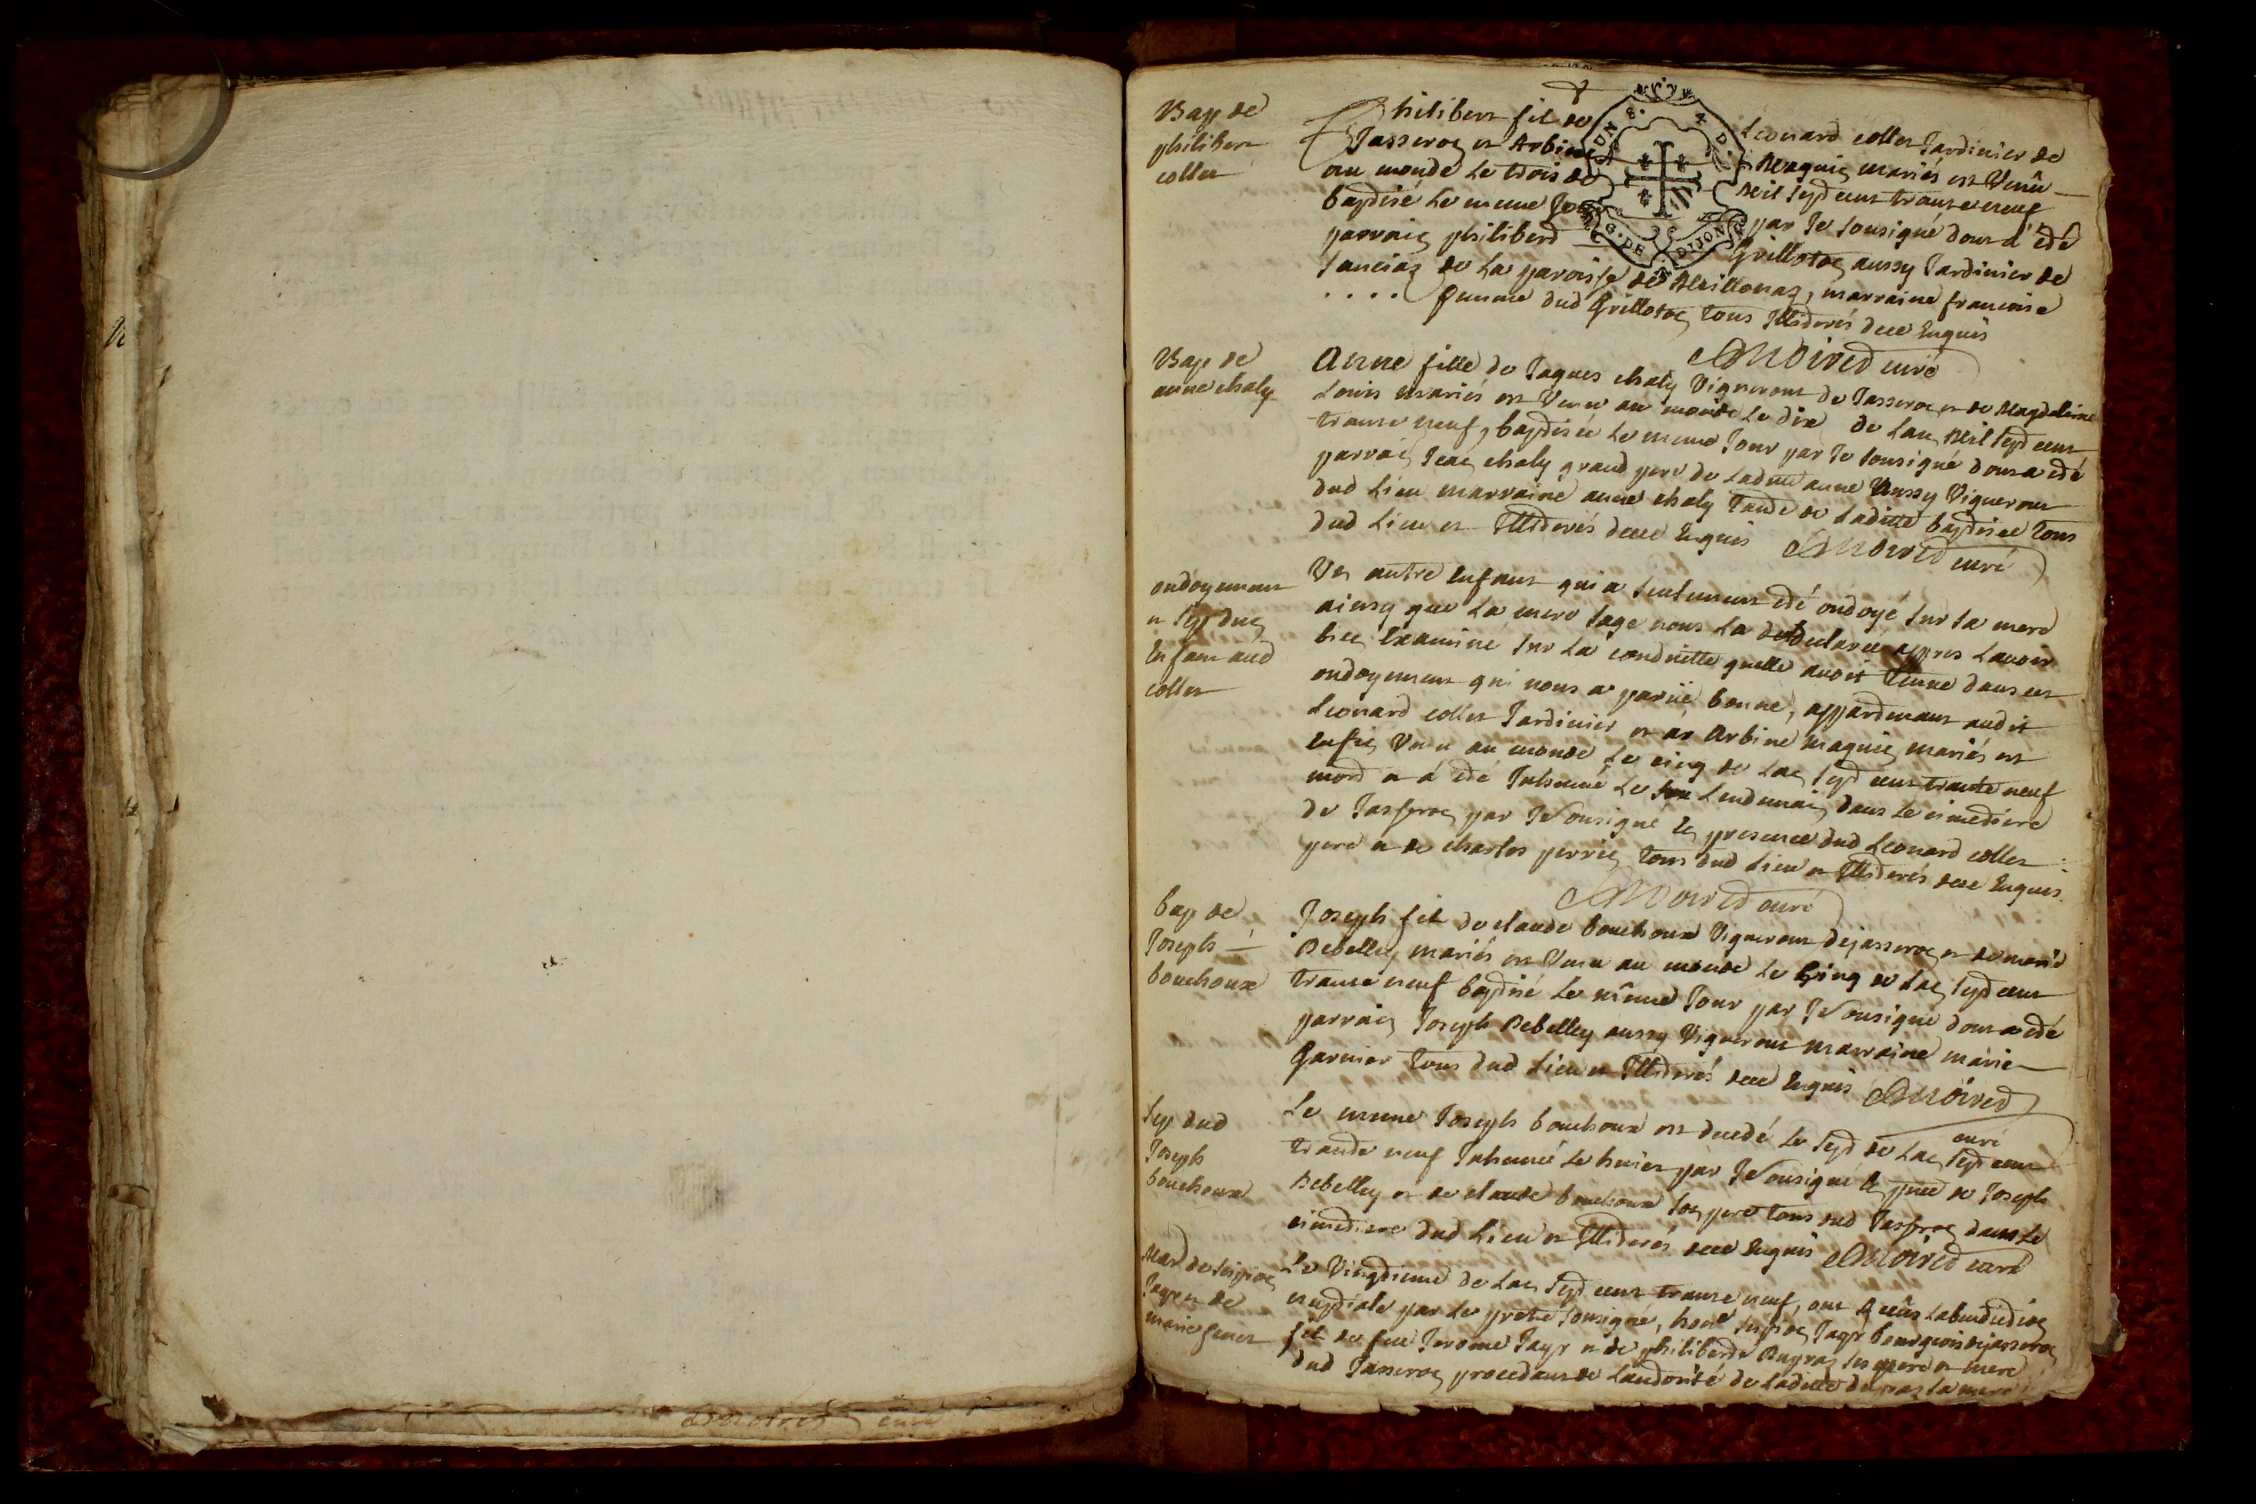 Bap de
philibert
collet
Philibert fil de Leonard collet Jardinier de
Jasseron et Arbine Magnin mariés est Venû
au monde le trois de Mil sept cent trante neuf
baptisé le meme Jour par Je sousigné dont a été
parrain philiberd Grillotou aussy Jardinier de
sanciaz de la paroisse de Meillonaz, marraine francoise
.... femme dud Grillotou tous Illiderés dece Enquis
Moired curé
Bap de
anne chaly
Anne fille de Jaques chaly Vigneront de Jasseron et de Magdeleine
Louis mariés est Venue au monde Le dix de Lan Mil sept cent
trante neuf, baptisée Le meme Jour par Je sousigné dont a été
parrain Jean chaly grand pere de Laditte anne Aussy Vigneront
dud Lieu marraine anne chaly Tande de Laditte baptisee tous
dud Lieu et Illiderés dece Enquis Moired curé
ondoyement
et sep dun
Enfant aud
collet
Un autre Enfant qui a seulement été ondoyé sur la mere
ainsy que La mere sage nous La declaree appres Lavoir
bien Examiné sur La conduitte quelle avoit tenue dans cet
ondoyement qui nous a parüe bonne, appardenant audit
Leonard collet Jardinier et a Arbine Magnin mariés est
enfin Venu au monde Le cinq de Lan sept cent trante neuf
mord et a été Inhumé Le Lendemain dans Le cimediere
de Jasseron par Je sousigné En presence dud Leonard collet
pere et de charles perrin tous dud Lieu et Illiderés dece Enquis
Moired curé
bap de
Joseph
bouchoux
Joseph fil de claude bouchoux Vigneront dejasseron et de marie
Debelley mariés est Venu au monde Le cinq de Lan sept cent
trante neuf baptisé Le mîme Jour par Je sousigné dont a été
parrain Joseph Debelley aussy Vigneront marraine marie
Garnier tous dud Lieu et Illiderés dece Enquis Moired
curé
sep dud
Joseph
bouchoux
Le meme Joseph bouchoux est decedé Le sept de Lan sept cent
trande neuf Inhumé Le huiet par Je sousigné En pnce de Joseph
Debelley et de claude bouchoux son pere tous dud Jasseron dans Le
cimediere dud Lieu et Illiderés dece Enquis Moired curé
Mar de scipion
Jayr et de
marie genet
Le Vingtieme de Lan sept cent trante neuf, ont Reçûs Labenediction
nuptiale par Le pretre sousigné, hont scipion Jayr bourgeois dejasseron
fil de feu Jerome Jayr et de philiberde Dupraz ses pere et mere
dud Jasseron procedant de Landorité de Laditte dupraz sa mere
Moired curé